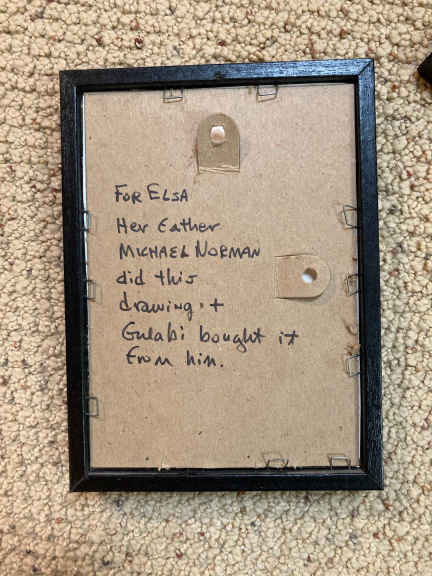 FOR ELSA
Her Father
MICHAEL NORMAN
did this
drawing. +
Gulabi bought it
From him.